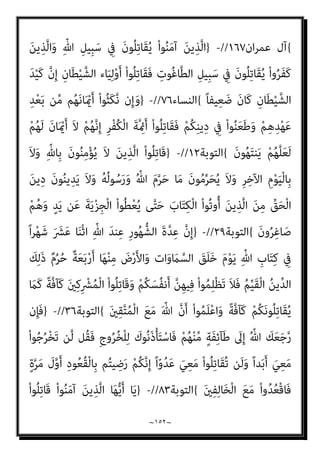 آل عمران١٦٧//- {الَّذِينَ آمَنُواْ يُقَاتِلُونَ فِي سَبِيلِ اللّهِ وَالَّذِينَ
كَفَرُواْ يُقَاتِلُونَ فِي سَبِيلِ الطَّاغُوتِ فَقَاتِلُواْ أَوْلِيَاء الشَّيْطَانِ إِنَّ كَيْدَ
الشَّيْطَانِ كَانَ ضَعِيفاً }النساء٧٦//- {وَإِن نَّكَثُواْ أَيْمَانَهُم مِّن بَعْدِ
عَهْدِهِمْ وَطَعَنُواْ فِي دِينِكُمْ فَقَاتِلُواْ أَئِمَّةَ الْكُفْرِ إِنَّهُمْ لاَ أَيْمَانَ لَهُمْ
لَعَلَّهُمْ يَنتَهُونَ }التوبة١٢//- {قَاتِلُواْ الَّذِينَ لاَ يُؤْمِنُونَ بِاللّهِ وَلاَ
بِالْيَوْمِ الآخِرِ وَلاَ يُحَرِّمُونَ مَا حَرَّمَ اللّهُ وَرَسُولُهُ وَلاَ يَدِينُونَ دِينَ
الْحَقِّ مِنَ الَّذِينَ أُوتُواْ الْكِتَابَ حَتَّى يُعْطُواْ الْجِزْيَةَ عَن يَدٍ وَهُمْ
صَاغِرُونَ }التوبة٢٩//- {إِنَّ عِدَّةَ الشُّهُورِ عِندَ اللّهِ اثْنَا عَشَرَ شَهْراً
فِي كِتَابِ اللّهِ يَوْمَ خَلَقَ السَّمَاوَات وَالأَرْضَ مِنْهَا أَرْبَعَةٌ حُرُمٌ ذَلِكَ
الدِّينُ الْقَيِّمُ فَلاَ تَظْلِمُواْ فِيهِنَّ أَنفُسَكُمْ وَقَاتِلُواْ الْمُشْرِكِينَ كَآفَّةً كَمَا
يُقَاتِلُونَكُمْ كَآفَّةً وَاعْلَمُواْ أَنَّ اللّهَ مَعَ الْمُتَّقِينَ }التوبة٣٦//- {فَإِن
رَّجَعَكَ اللّهُ إِلَى طَآئِفَةٍ مِّنْهُمْ فَاسْتَأْذَنُوكَ لِلْخُرُوجِ فَقُل لَّن تَخْرُجُواْ
مَعِيَ أَبَداً وَلَن تُقَاتِلُواْ مَعِيَ عَدُوّاً إِنَّكُمْ رَضِيتُم بِالْقُعُودِ أَوَّلَ مَرَّةٍ
فَاقْعُدُواْ مَعَ الْخَالِفِينَ }التوبة٨٣//- {يَا أَيُّهَا الَّذِينَ آمَنُواْ قَاتِلُواْ
~١٥٢~